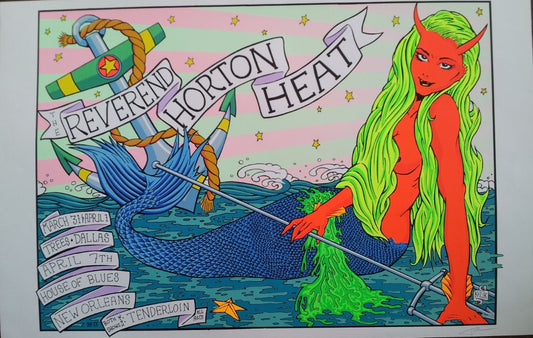 THE REVEREND
HORTON
HEAT
MARCH 31 & APRIL 1
TREES • DALLAS
APRIL 7TH
HOUSE OF BLUES
NEW ORLEANS
BOTH SHOWS: TENDERLOIN